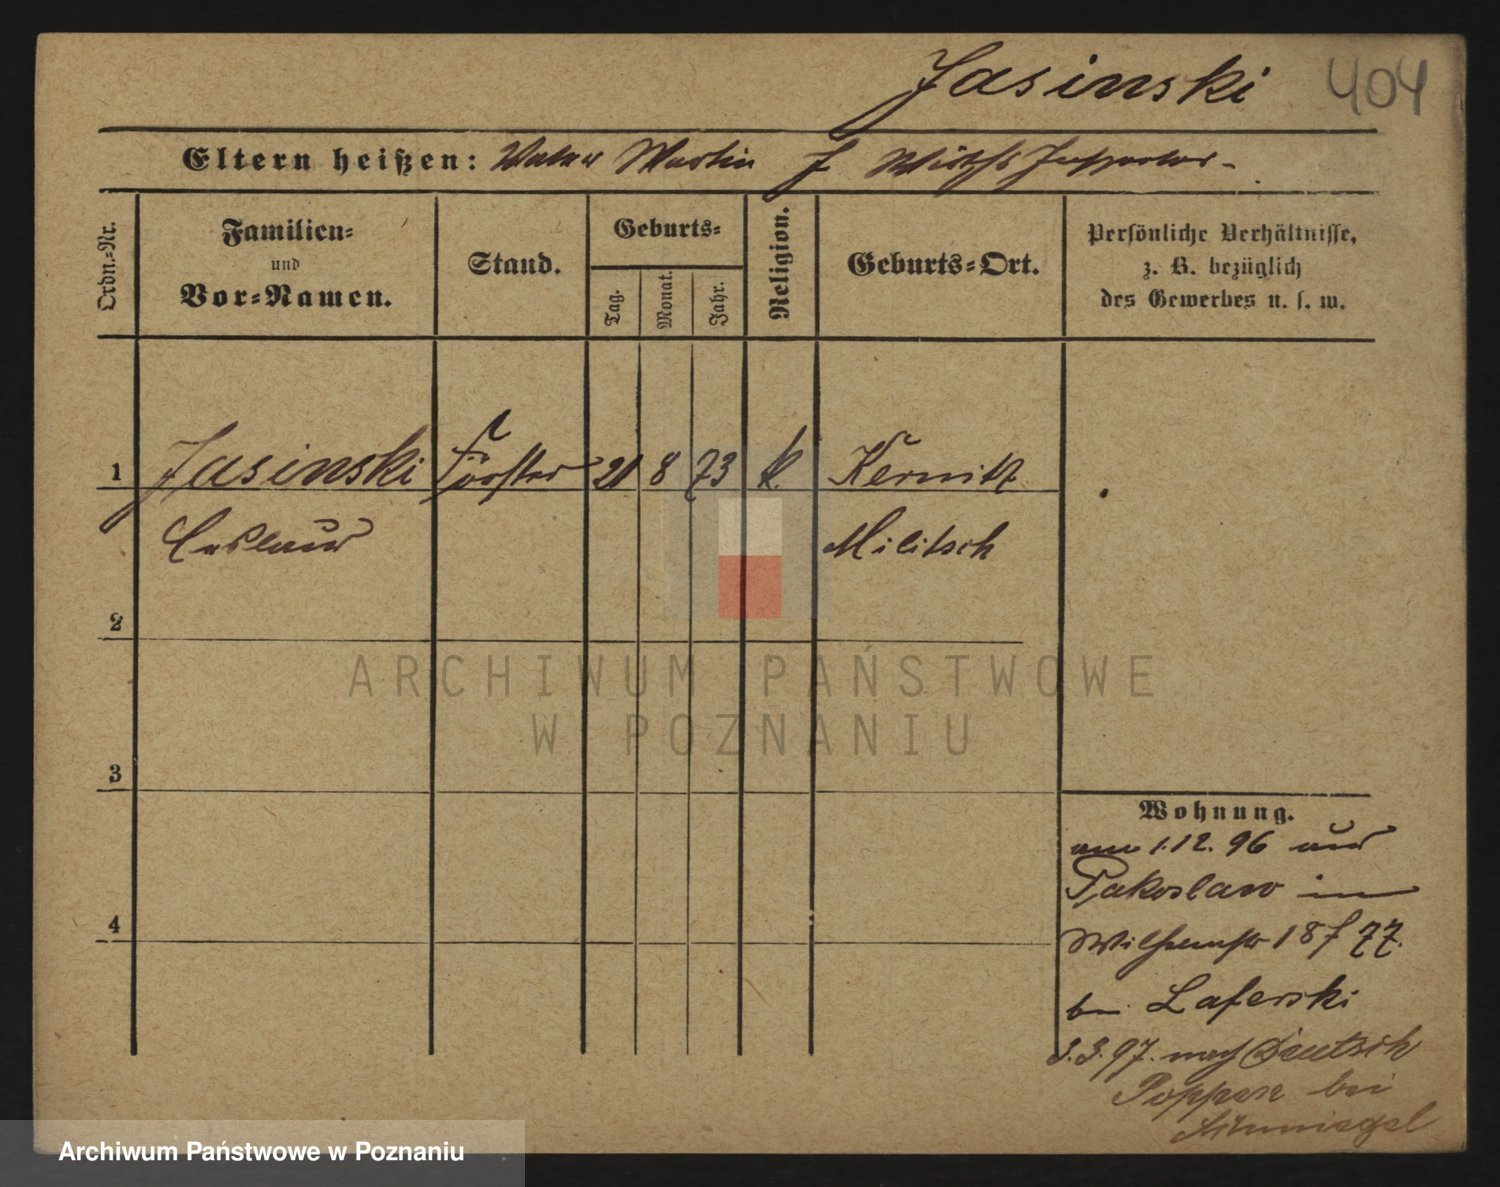 Jasinski 404
Eltern heißen: Vater Martin J Wirthsch Inspector -
Ordn.=Nr.
Familien=
und
Vor=Namen.
Stand.
Geburts=
Tag.
Monat.
Jahr.
Religion.
Geburts=Ort.
Persönliche Verhältnisse,
z. B. bezüglich
des Gewerbes u. s. w.
1 Jasinski Förster 21 8 73 k. Kernitz
Ceslaus Militsch
2
3
4
Wohnung.
am 1.12.96 aus
Pakoslaw in
Wilhelmstr 18 f 77.
bei Laferski
3.3.97. nach Deutsch
Poppen bei
Schmiegel
ARCHIWUM PAŃSTWOWE
W POZNANIU
Archiwum Państwowe w Poznaniu